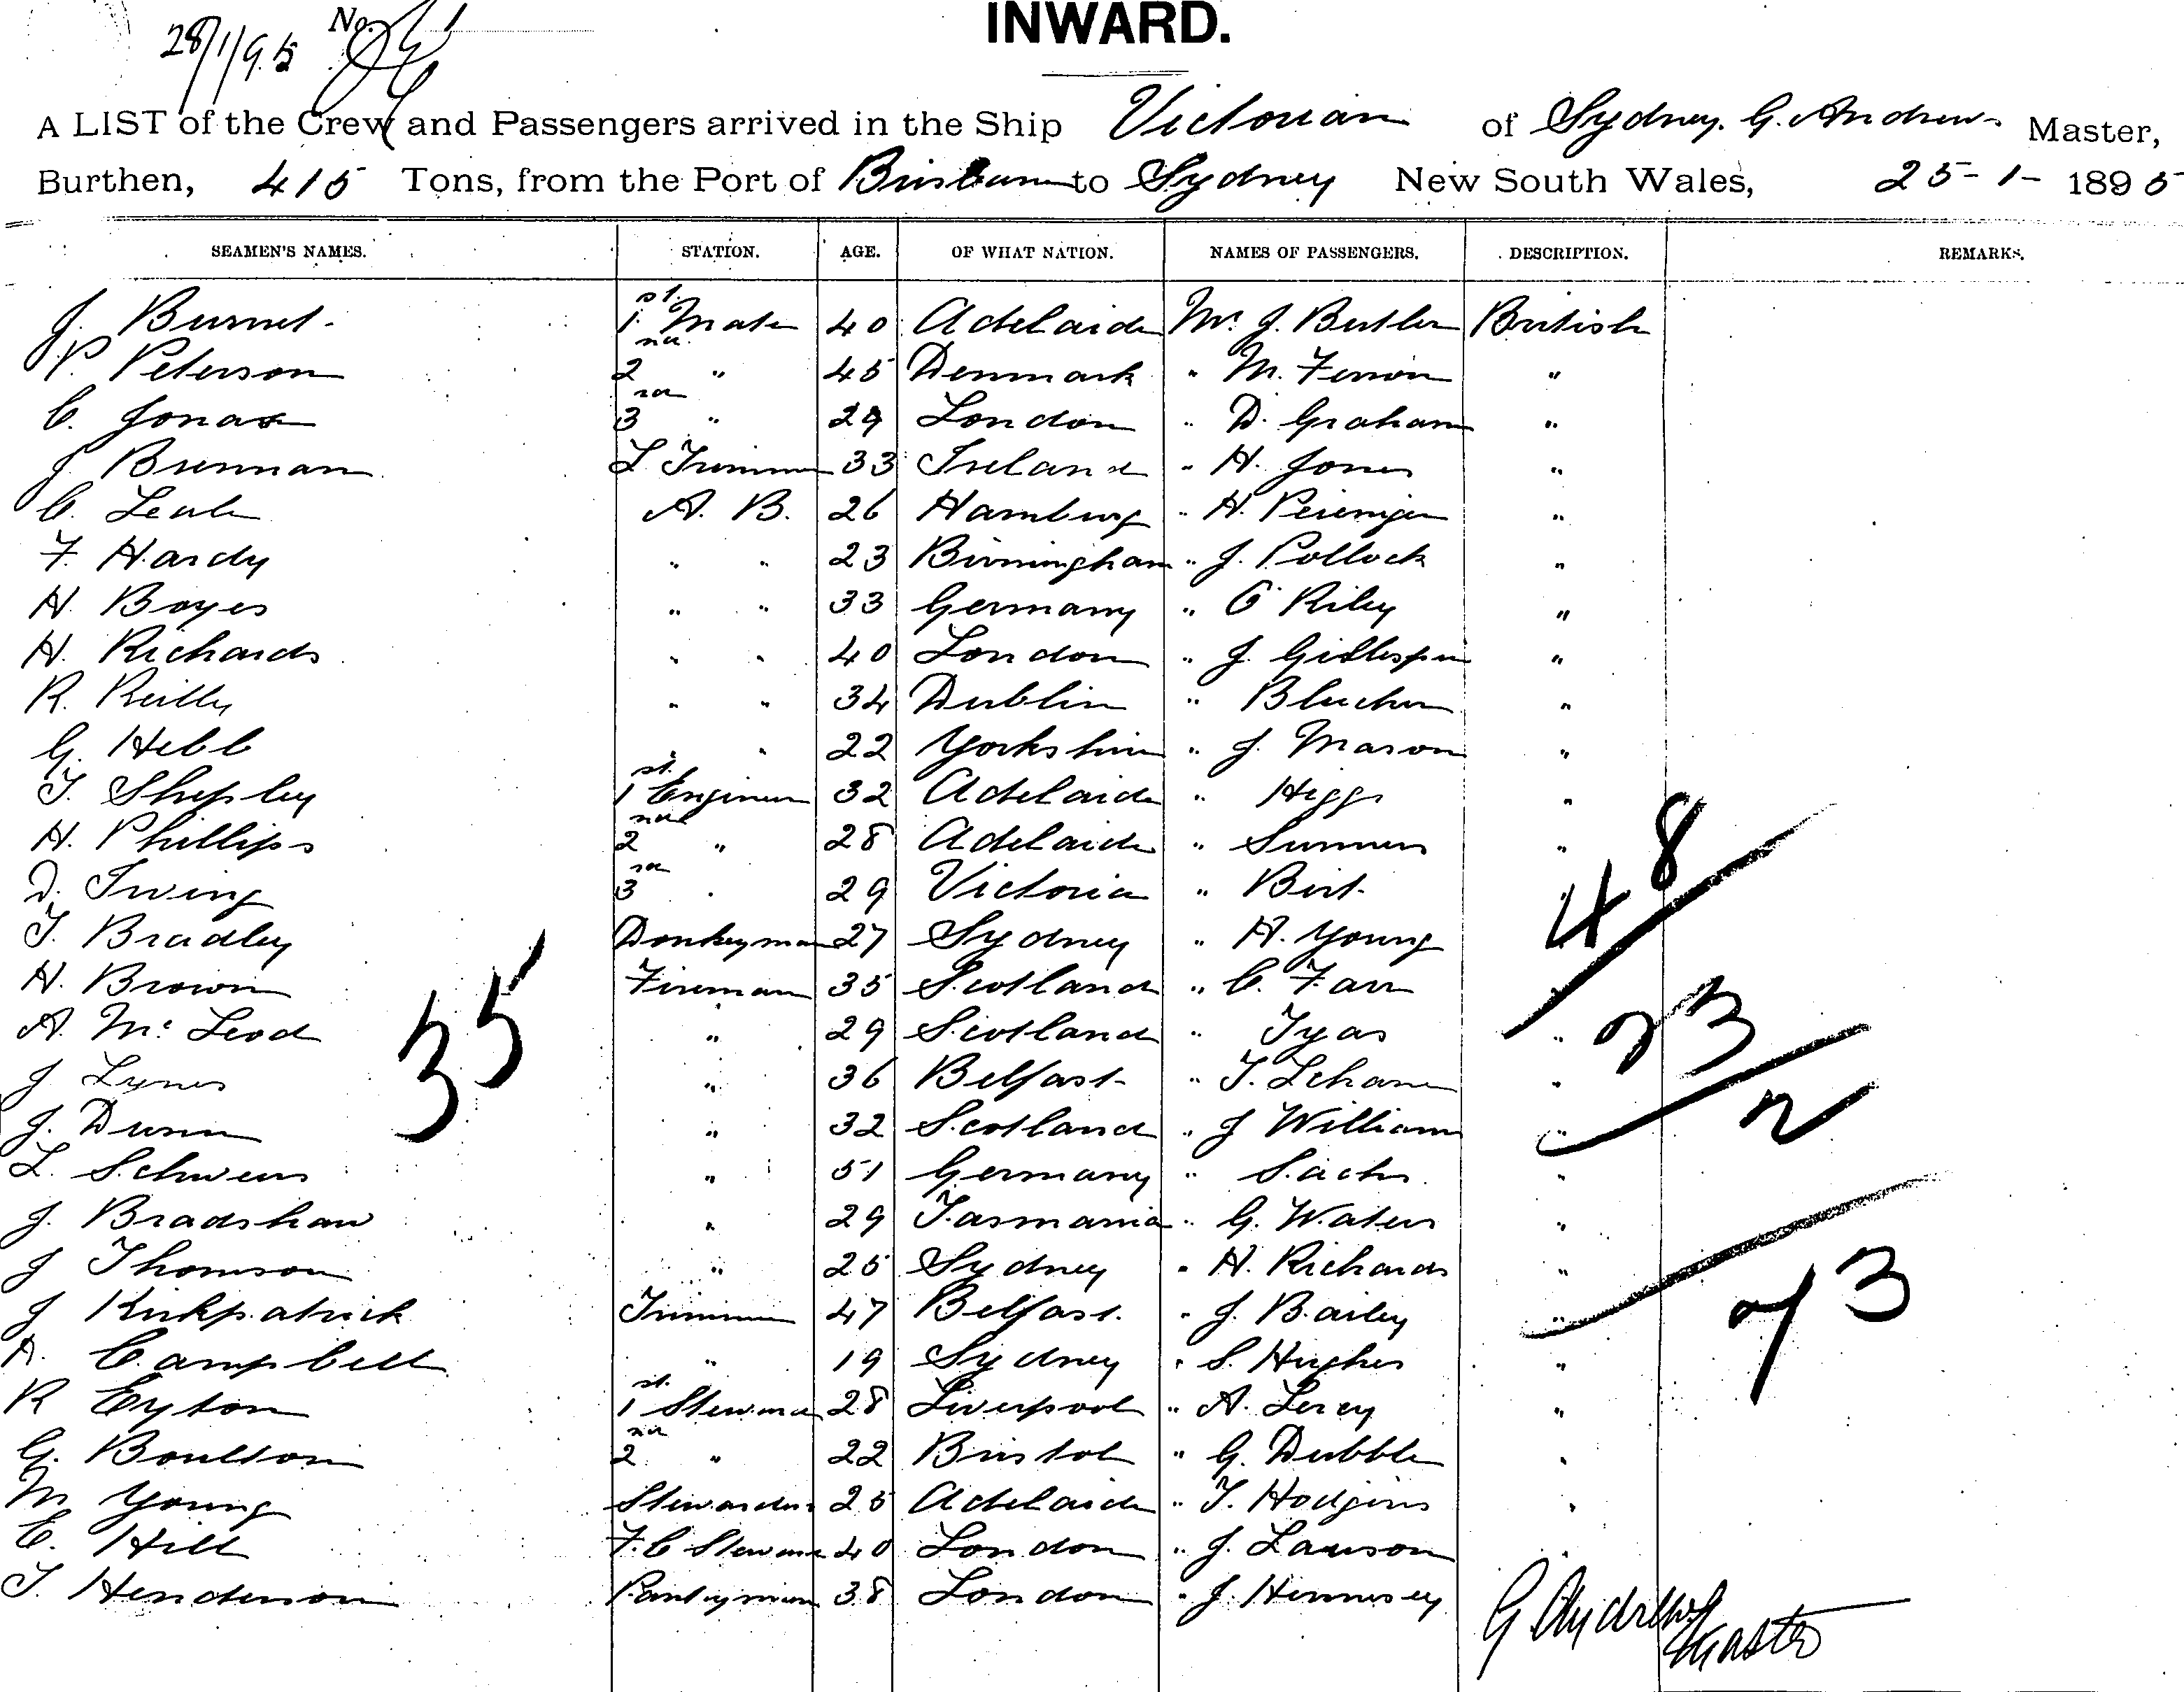 28/1/95 No.
INWARD.
A LIST of the Crew and Passengers arrived in the Ship Victorian of Sydney. G. Andrews Master,
Burthen, 415 Tons, from the Port of Brisbane to Sydney New South Wales, 25-1-1895
SEAMEN'S NAMES. STATION. AGE. OF WHAT NATION. NAMES OF PASSENGERS. DESCRIPTION. REMARKS.
J. Burnet. 1st Mate 40 Adelaide Mr. J. Butler British
P. Peterson 2nd " 45 Denmark " M. "
C. Jonas 3rd " 29 London " D. Graham "
J. Brennan L. Trimmer 33 Ireland " H. Jones "
C. A. B. 26 Hamburg " H. "
F. Hardy " " 23 Birmingham " J. Pollock "
H. Boyes " " 33 Germany " Riley "
H. Richards " " 40 London " J. Gillespie "
R. Reilly " " 34 Dublin " Blucher "
G. Hebb " " 22 Yorkshire " J. Mason "
T. Shepley 1st Engineer 32 Adelaide " Higgs "
H. Phillips 2nd " 28 Adelaide " Sumners "
D. Irving 3rd " 29 Victoria " Birt. "
T. Bradley Donkeyman 27 Sydney " H. Young 48
H. Brown Fireman 35 Scotland " C. Farr "
A. McLeod " 29 Scotland " Tyas " 23
35
J Lynes " 36 Belfast " T. Lehane "
J. Dunn " 32 Scotland " J Williams " 2
L. " 51 Germany " Sachs "
J. Bradshaw " 29 Tasmania " G. Waters "
J Thomson " 25 Sydney " H. Richards "
J Kirkpatrick Trimmer 47 Belfast. " J. Bailey " 73
A. Campbell " 19 Sydney " S. Hughes "
R Eyton 1st Steward 28 Liverpool " A. "
G. Boulton 2nd " 22 Bristol " G. Dubble "
M Young Stewardess 25 Adelaide " T. Hodgins "
E. Hill F. C Steward 40 London " J. Lawson
T. Henderson Pantryman 38 London " J. Hennesey
G Andrews
Master